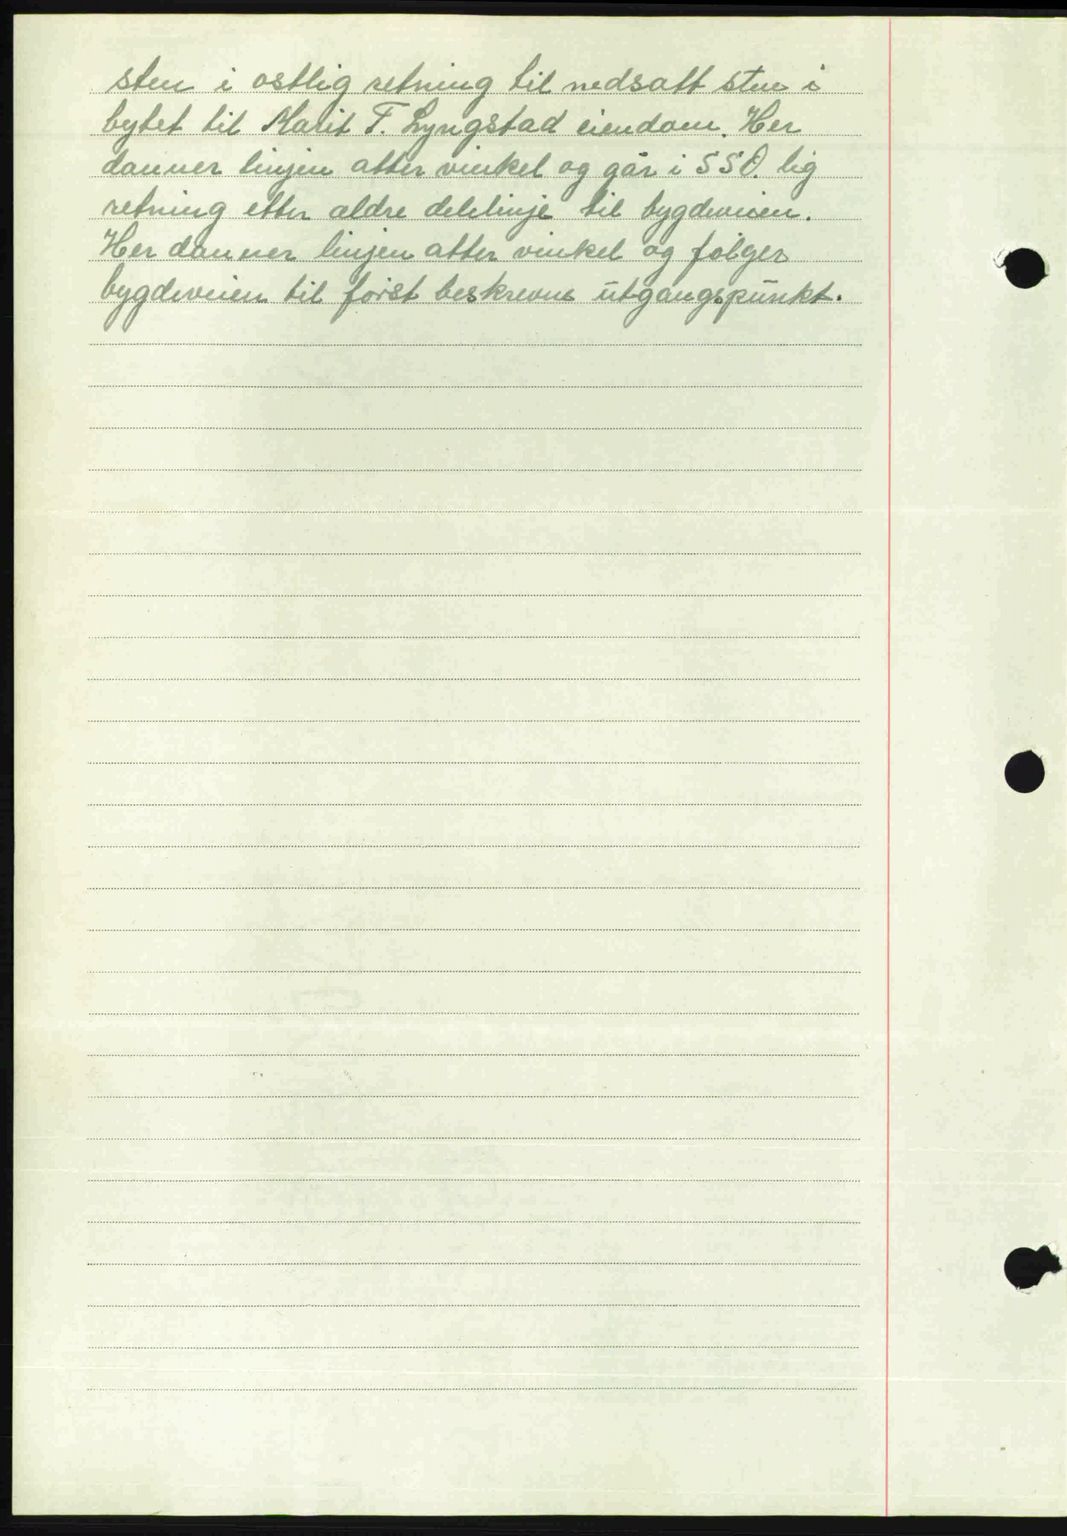 sten i ostlig retning til nedsatt sten i
bytet til Marit F. Lyngstad eiendom. Her
danner linjen atter vinkel og går i SSØ. lig
retning etter aldre delelinje til bygdeveien.
Her danner linjen atter vinkel og følger
bygdeveien til først beskrevne utgangspunkt.